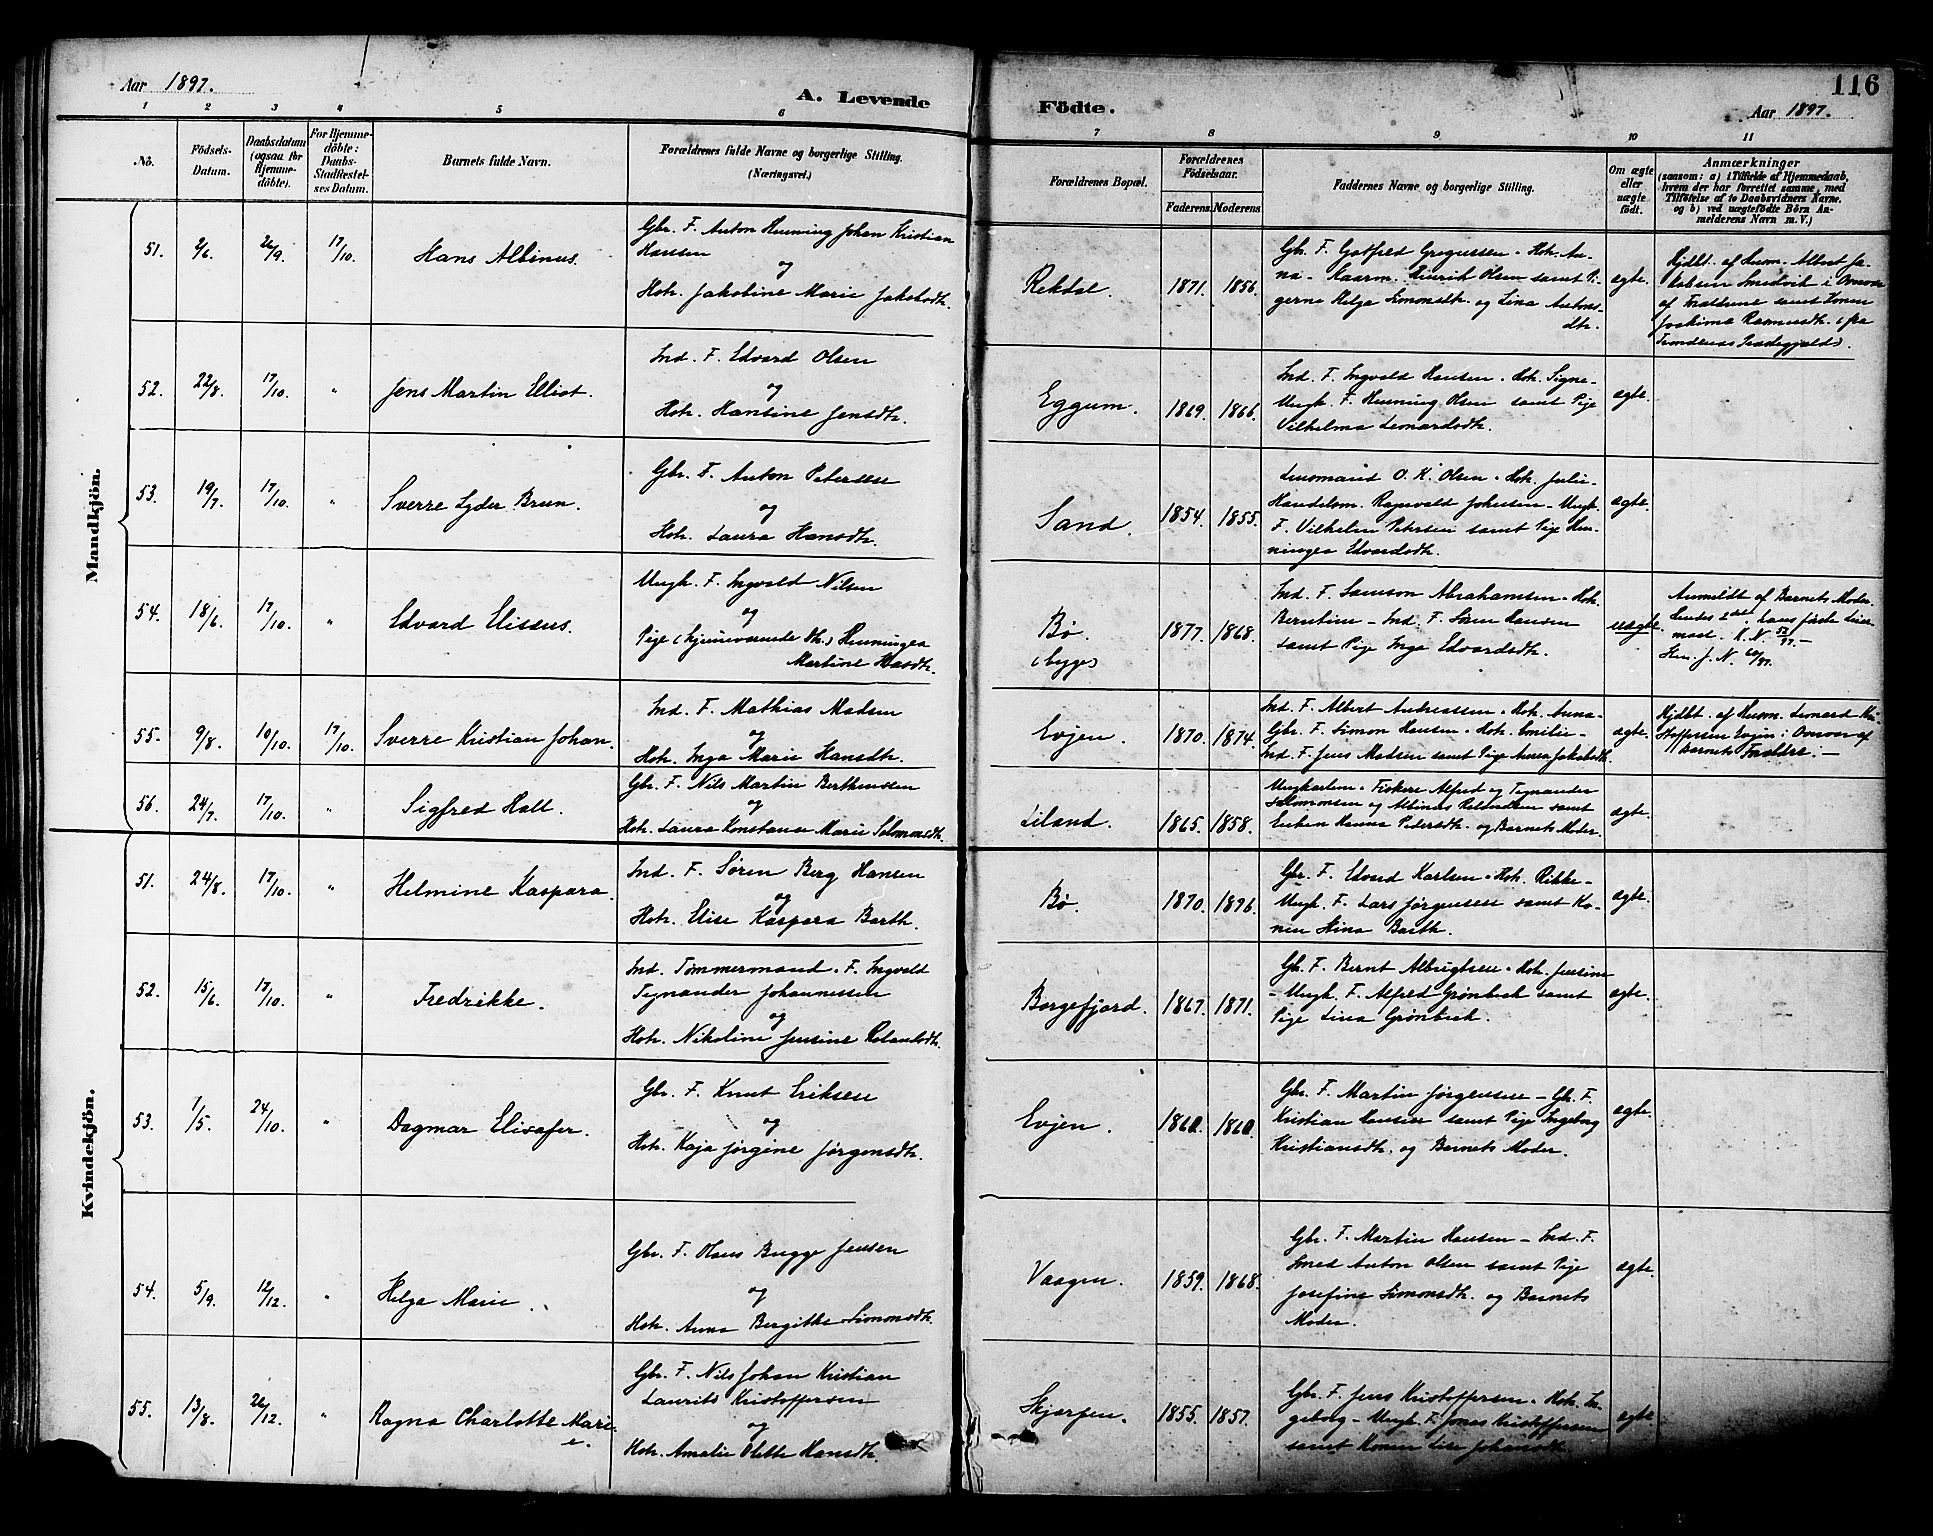 Aar 1897.
A. Levende
Födte.
116
Aar 1897.
1 2 3 4 5 6 7 8 9 10 11
No.
Födsels-Datum.
Daabsdatum (ogsaa for Hjemmedöbte).
For Hjemmedöbte: Daabs-Stadfæstelses Datum.
Barnets fulde Navn.
Forældrenes fulde Navne og borgerlige Stilling.
(Næringsvei.)
Forældrenes Bopæl.
Forældrenes Födselsaar.
Faderens. Moderens.
Faddernes Navne og borgerlige Stilling.
Om ægte eller uægte födt.
Anmærkninger
(saasom: a) i Tilfælde af Hjemmedaab,
hvem der har forrettet samme, med
Tilföielse af to Daabsvidners Navne.
og b) ved uægtefödte Börn An-
melderens Navn m. V.)
Mandkjön.
51. 2/6. 26/9. 17/10. Hans Albinus.
Gbr. F. Anton Henning Johan Kristian
Hansen
og
Hstr. Jakobine Marie Jakobsdtr.
Rekdal. 1871. 1856.
Gbr. F. Gotfred Gregussen. Hstr. An-
na - Henrik Olsen samt Pi-
gerne Helga Simonsdtr. og Lina Antons-
dtr.
ægte.
Hjdbt. af Husm. Albert Ja-
kobsen Smedvik i Overvær
af Forældrene samt Konen
Joakima Rasmusdtr. (fra
Præstegjeld).
52. 22/8. 17/10. " Jens Martin Elliot.
Ind. F. Edvard Olsen
og
Hstr. Hansine Jensdtr.
Eggum. 1869. 1866.
Ind. F. Ingvald Hansen. Hstr. Signe -
Ungk. F. Henning Olsen samt Pige
Vilhelma Leonardsdtr.
ægte.
53. 19/7. 17/10. " Sverre Lyder Brun.
Gbr. F. Anton Petersen
og
Hstr. Laura Hansdtr.
Sand. 1854. 1855.
Lensmand O. K. Olsen. Hstr. Julie -
Handelsm. Ragnvald Johnsen - Ungk.
F. Vilhelm Petersen samt Pige Hen-
ningea Edvardsdtr.
ægte.
54. 18/6. 17/10. " Edvard Elisæus.
Ungk. F. Ingvald Nilsen
og
Pige (hjemmeværende Dtr.) Henningea
Martine Hansdtr.
Bø.
(bygs) 1877. 1868.
Ind. F. Samson Abrahamsen. Hstr.
Berntine - Ind. F. Søren Hansen
samt Pige Inga Edvardsdtr.
uægte.
Anmeldt af Barnets Moder.
Hendes 2det, hans første Leier-
maal. K. N. 52/97. -
J. N. 60/97.
55. 9/8. 10/10. 17/10. Sverre Kristian Johan.
Ind. F. Mathias Madsen
og
Hstr. Inga Marie Hansdtr.
Evjen. 1870. 1874.
Ind. F. Albert Andreassen. Hstr. Anna -
Gbr. F. Simon Hansen. Hstr. Emilie -
Ind. F. Jens Madsen samt Pige Anna Jakobsdtr.
ægte.
Hjdbt. af Husm. Leonard Kri-
stoffersen Evjen i Overvær af
Barnets Forældre. -
56. 24/7. 17/10. " Sigfred Hall.
Gbr. F. Nils Martin Berthinussen
og
Hstr. Laura Konstanse Marie Salomonsdtr.
Liland. 1865. 1858.
Ungkarlene. Fiskere Alfred og Tegnander
Salomonsen og Albinus samt
Enken Hanna Pedersdtr. og Barnets Moder.
ægte.
Kvindekjön.
51. 24/8. 17/10. " Helmine Kaspara.
Ind. F. Søren Berg Hansen
og
Hstr. Elise Kaspara Barth.
Bø. 1870. 1876.
Gbr. F. Edvard Karlsen. Hstr. Rikke -
Ungk. F. Lars Jørgensen samt Ko-
nen Stina Barth.
ægte.
52. 15/6. 17/10. " Fredrikke.
Ind. Tømmermand. F. Ingvald
Tegnander Johannessen
og
Hstr. Nikoline Jensine Rolandsdtr.
Borgefjord. 1867. 1871.
Gbr. F. Bernt Albrigtsen. Hstr. Jensine
- Ungk. F. Alfred Grønbech samt
Pige Lina Grønbech.
ægte.
53. 7/5. 24/10. " Dagmar Elisafer.
Gbr. F. Knut Eriksen
og
Hstr. Kaja Jørgine Jørgensdtr.
Evjen. 1860. 1860.
Gbr. F. Martin Jørgensen - Gbr. F.
Kristian Hansen samt Pige Ingeborg
Kristiansdtr. og Barnets Moder.
ægte.
54. 5/9. 12/12. " Helga Marie.
Gbr. F. Olaus Bugge Jensen
og
Hstr. Anna Bergitha Simonsdtr.
Vaagen. 1859. 1868.
Gbr. F. Martin Hansen - Ind. F.
Smed Anton Olsen samt Pige
Josefine Simonsdtr. og Barnets
Moder.
ægte.
55. 13/8. 26/12. " Ragna Charlotte Marie.
Gbr. F. Nils Johan Kristian
Laurits Kristoffersen
og
Hstr. Amalie Olette Hansdtr.
Skjerpen. 1855. 1857.
Gbr. F. Jens Kristoffersen. Hstr. In-
geborg - Ungk. F. Jonas Kristoffersen
samt Konen Lise Johansdtr.
ægte.